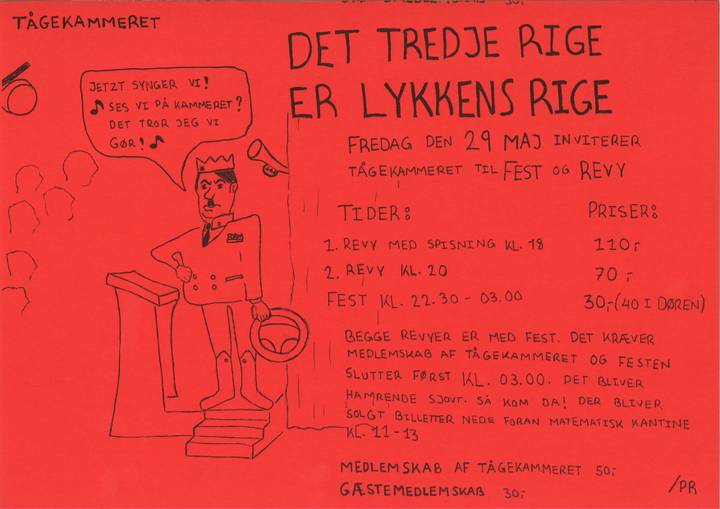 TÅGEKAMMERET
30,-
DET TREDJE RIGE
ER LYKKENS RIGE
JETZT SYNGER VI!
♪ SES VI PÅ KAMMERET?
DET TROR JEG VI
GØR! ♪
FREDAG DEN 29 MAJ INVITERER
TÅGEKAMMERET TIL FEST OG REVY
TIDER: PRISER:
1. REVY MED SPISNING KL. 18 110,-
2. REVY KL. 20 70,-
FEST KL. 22.30 - 03.00 30,- (40 I DØREN)
BEGGE REVYER ER MED FEST. DET KRÆVER
MEDLEMSKAB AF TÅGEKAMMERET OG FESTEN
SLUTTER FØRST KL. 03.00. DET BLIVER
HAMRENDE SJOVT. SÅ KOM DA! DER BLIVER
SOLGT BILLETTER NEDE FORAN MATEMATISK KANTINE
KL. 11-13
MEDLEMSKAB AF TÅGEKAMMERET 50,-
GÆSTEMEDLEMSKAB 30,-
/PR